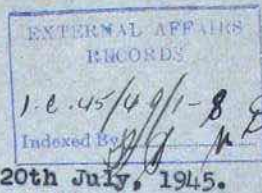 EXTERNAL AFFAIRS
RECORDS
1.c.45/49/1-8
Indexed By
20th July, 1945.